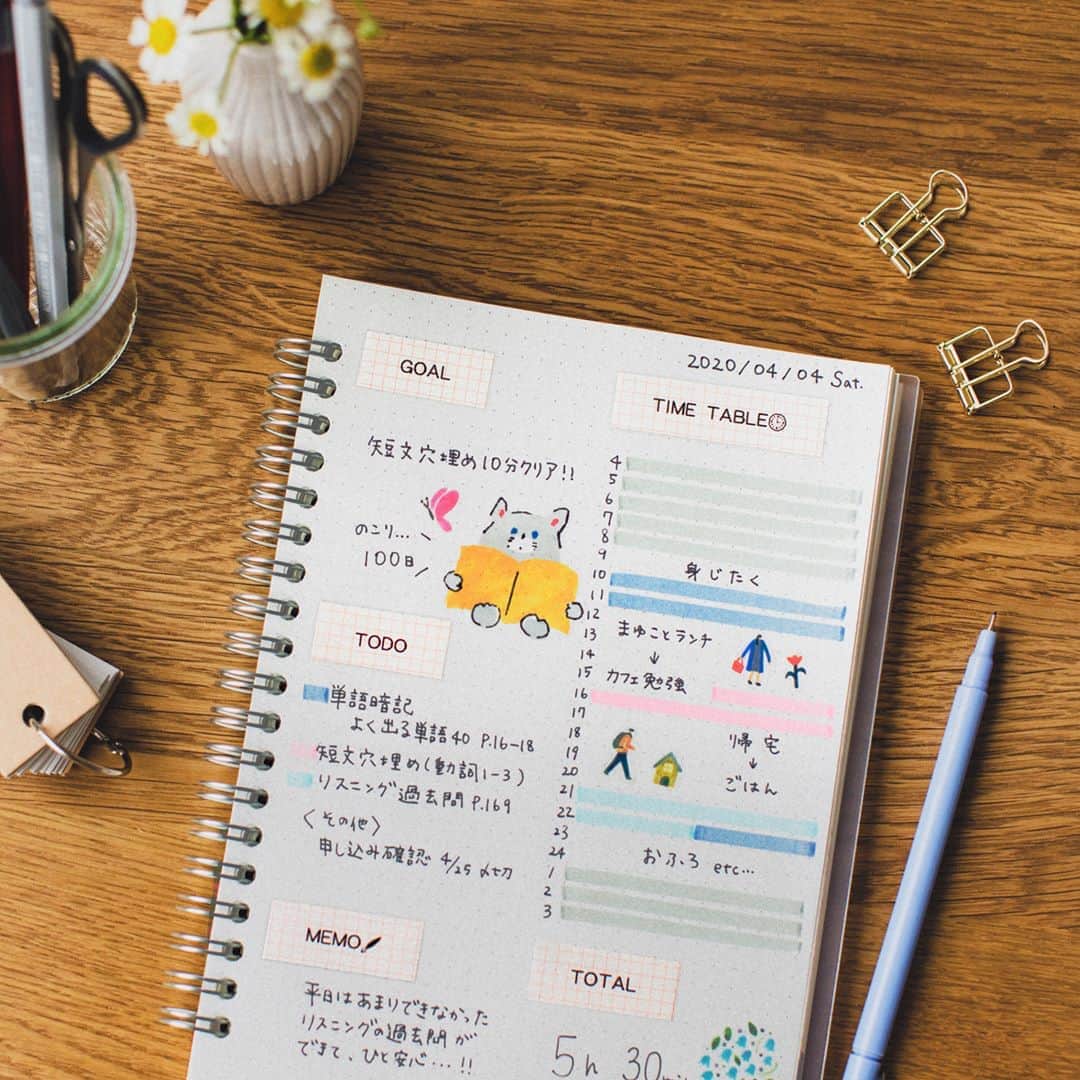 2020/04/04 Sat.
GOAL
短文穴埋め10分クリア!!
のこり...
100日
TODO
単語暗記
よく出る単語40 P.16-18
短文穴埋め(動詞1-3)
リスニング過去問 P.169
〈その他〉
申し込み確認 4/25 〆切
MEMO
平日はあまりできなかった
リスニングの過去問が
できて、ひと安心...!!
TIME TABLE
4
5
6
7
8
9
身じたく
10
11
12
13
まゆことランチ
↓
14
15
カフェ勉強
16
17
18
帰宅
↓
19
20
ごはん
21
22
23
24
おふろ etc...
1
2
3
TOTAL
5h 30min